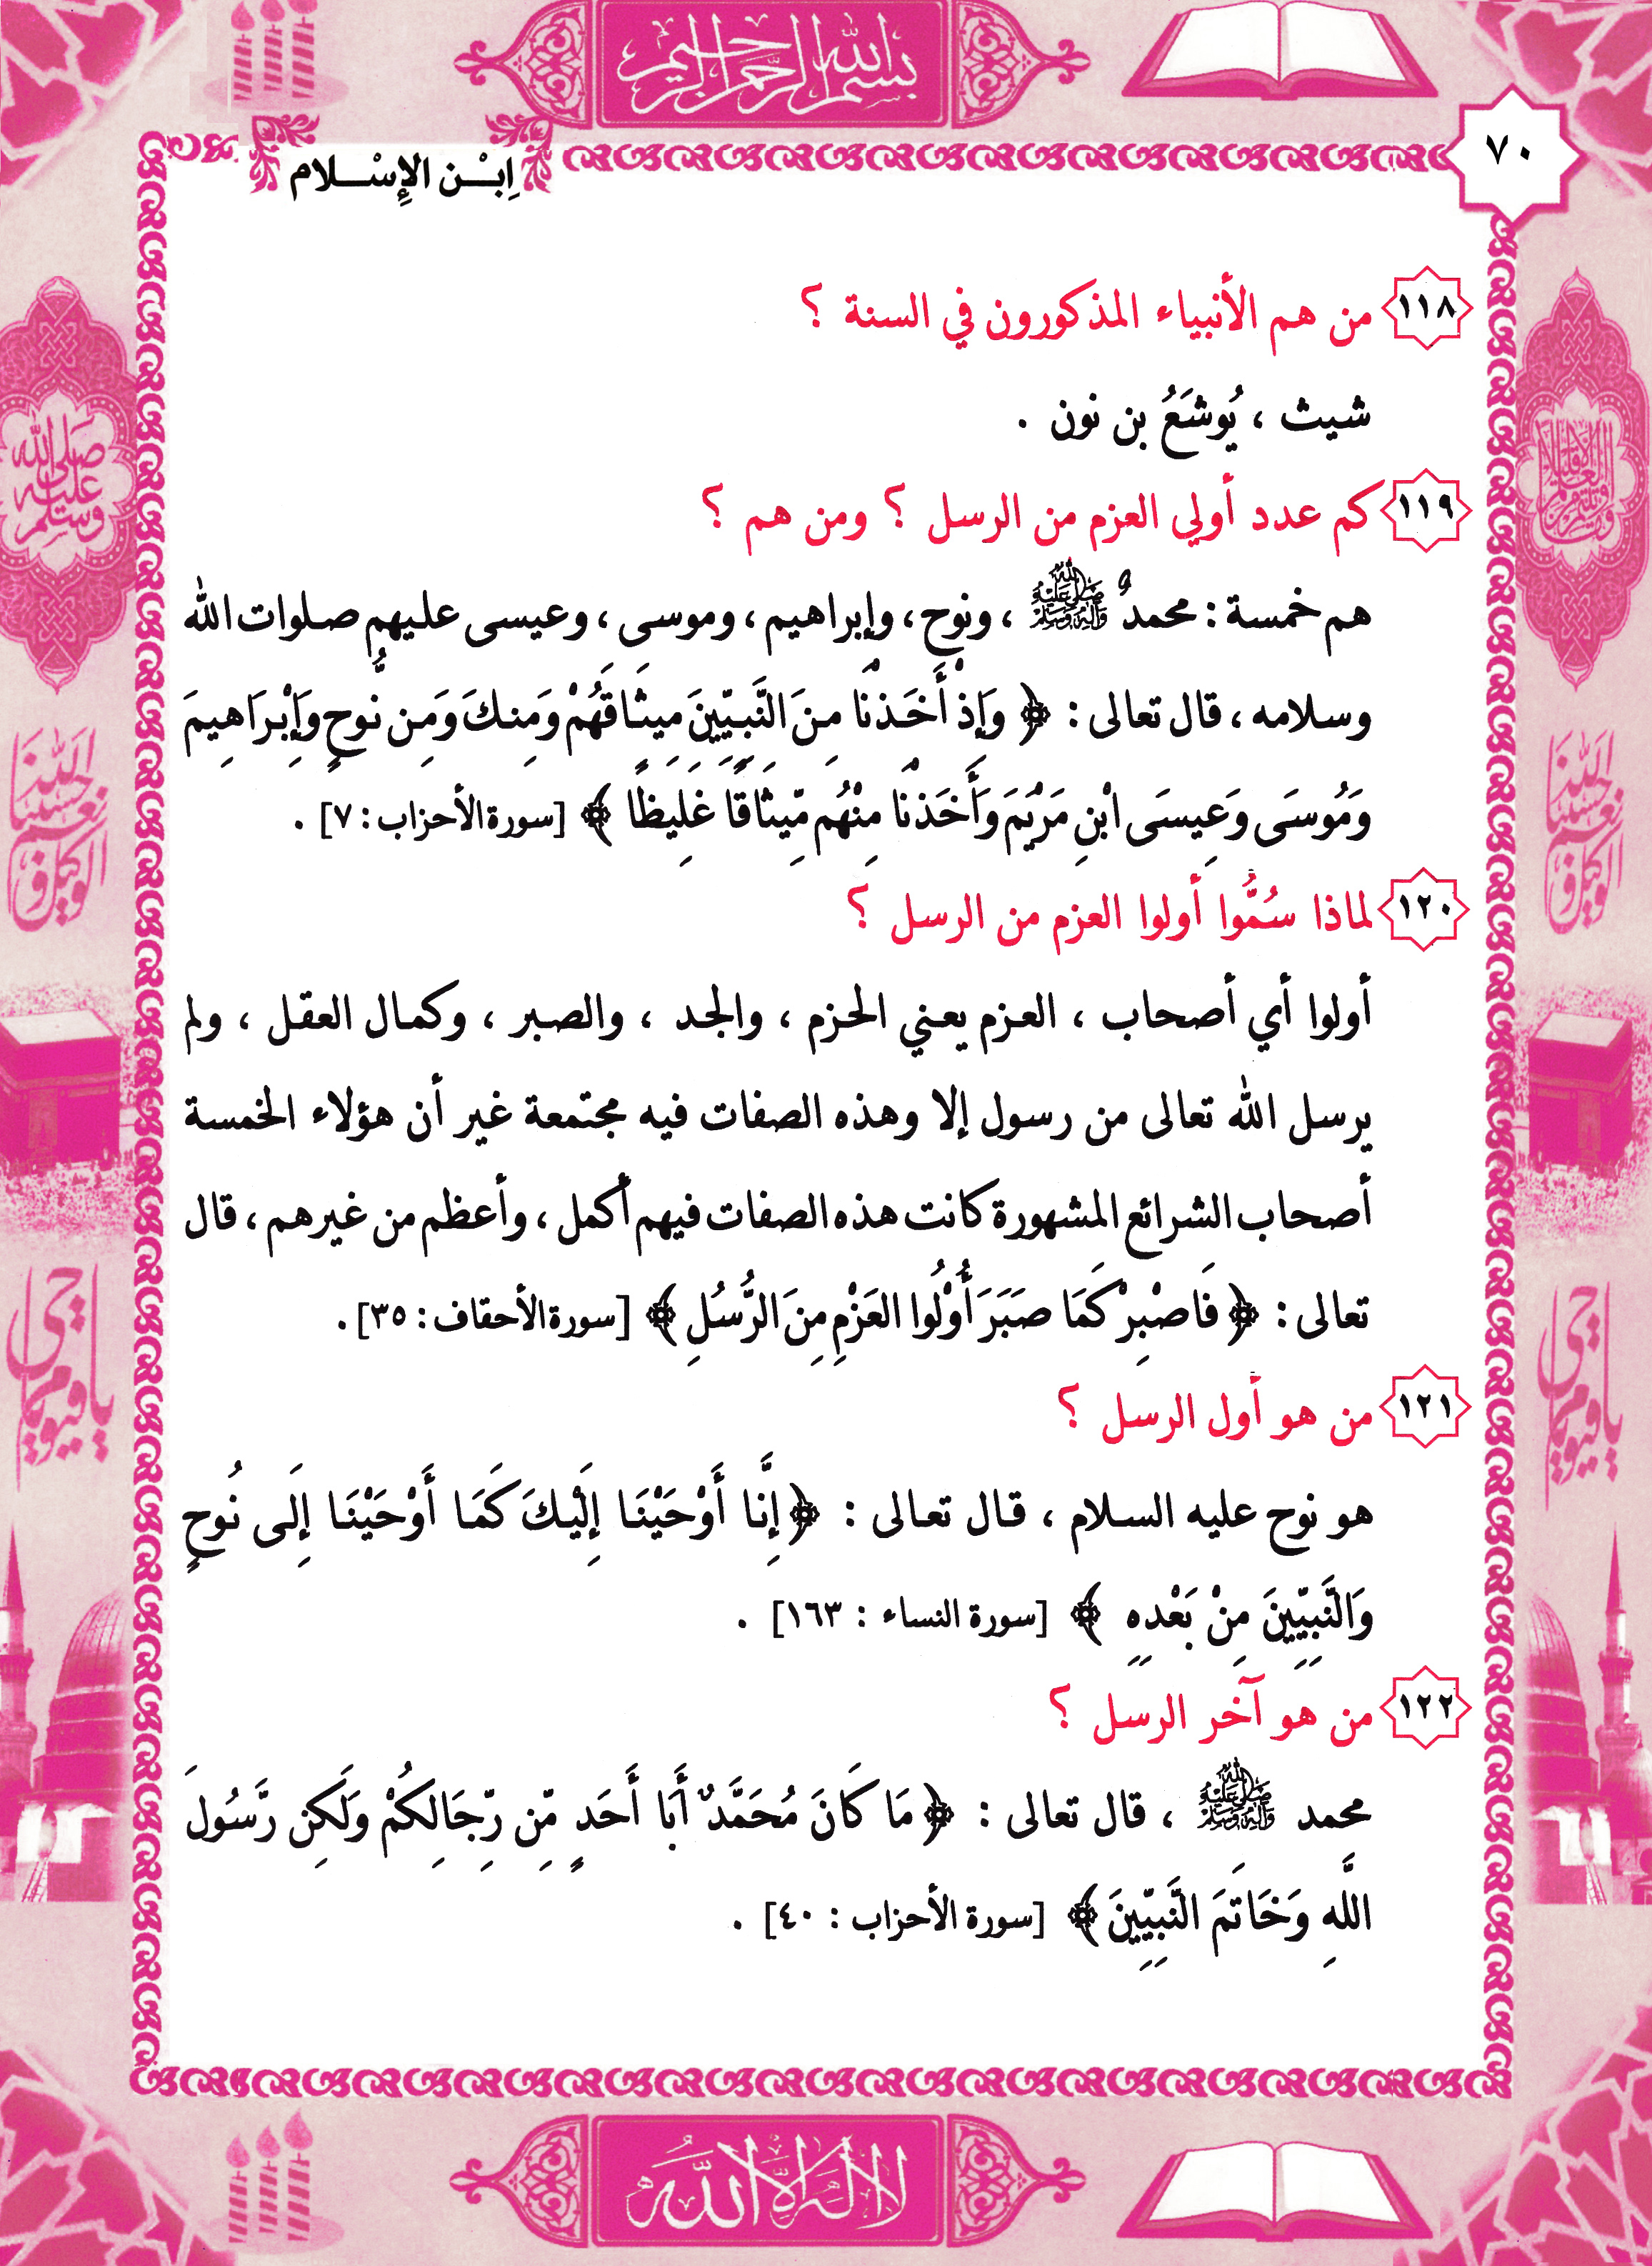 بسم الله الرحمن الرحيم
٧٠
اِبْـــن الإِسْـــلام
١١٨ من هم الأنبياء المذكورون في السنة ؟
شيث ، يُوشَعُ بن نون .
١١٩ كم عدد أولي العزم من الرسل ؟ ومن هم ؟
هم خمسة : محمدٌ ﷺ ، ونوح ، وإبراهيم ، وموسى ، وعيسى عليهم صلوات الله
وسلامه ، قال تعالى : ﴿ وَإِذْ أَخَذْنَا مِنَ النَّبِيِّينَ مِيثَاقَهُمْ وَمِنكَ وَمِن نُّوحٍ وَإِبْرَاهِيمَ
وَمُوسَى وَعِيسَى ابْنِ مَرْيَمَ وَأَخَذْنَا مِنْهُم مِّيثَاقًا غَلِيظًا ﴾ [سورة الأحزاب : ٧] .
١٢٠ لماذا سُمُّوا أولوا العزم من الرسل ؟
أولوا أي أصحاب ، العزم يعني الحزم ، والجد ، والصبر ، وكمال العقل ، ولم
يرسل الله تعالى من رسول إلا وهذه الصفات فيه مجتمعة غير أن هؤلاء الخمسة
أصحاب الشرائع المشهورة كانت هذه الصفات فيهم أكمل ، وأعظم من غيرهم ، قال
تعالى : ﴿ فَاصْبِرْ كَمَا صَبَرَ أُوْلُوا العَزْمِ مِنَ الرُّسُلِ ﴾ [سورة الأحقاف : ٣٥] .
١٢١ من هو أول الرسل ؟
هو نوح عليه السلام ، قال تعالى : ﴿ إِنَّا أَوْحَيْنَا إِلَيْكَ كَمَا أَوْحَيْنَا إِلَى نُوحٍ
وَالنَّبِيِّينَ مِنْ بَعْدِهِ ﴾ [سورة النساء : ١٦٣] .
١٢٢ من هو آخر الرسل ؟
محمد ﷺ ، قال تعالى : ﴿ مَا كَانَ مُحَمَّدٌ أَبَا أَحَدٍ مِّن رِّجَالِكُمْ وَلَكِن رَّسُولَ
اللَّهِ وَخَاتَمَ النَّبِيِّينَ ﴾ [سورة الأحزاب : ٤٠] .
صلى الله عليه وسلم
حسبنا الله ونعم الوكيل
يا حي يا قيوم
لا إله إلا الله